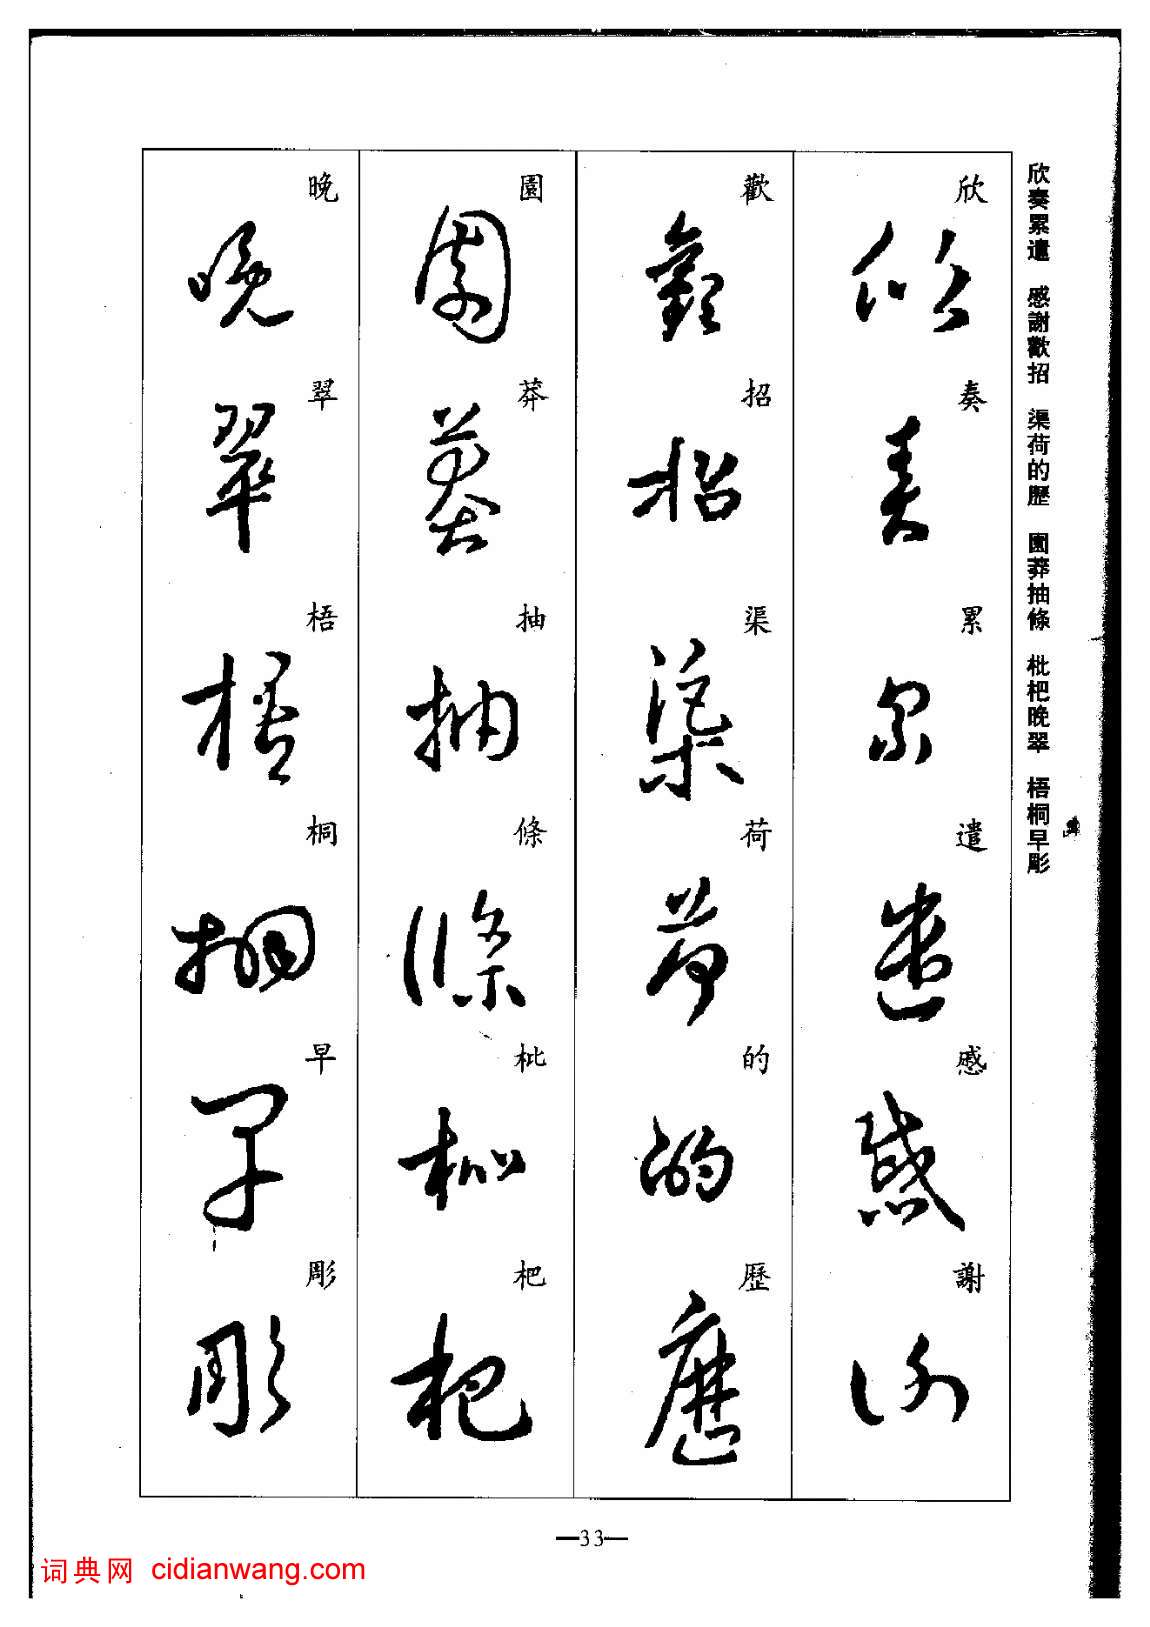 欣奏累遣 慼謝歡招 渠荷的歷 園莽抽條 枇杷晚翠 梧桐早彫
欣奏累遣慼謝
歡招渠荷的歷
園莽抽條枇杷
晚翠梧桐早彫
—33—
词典网 cidianwang.com